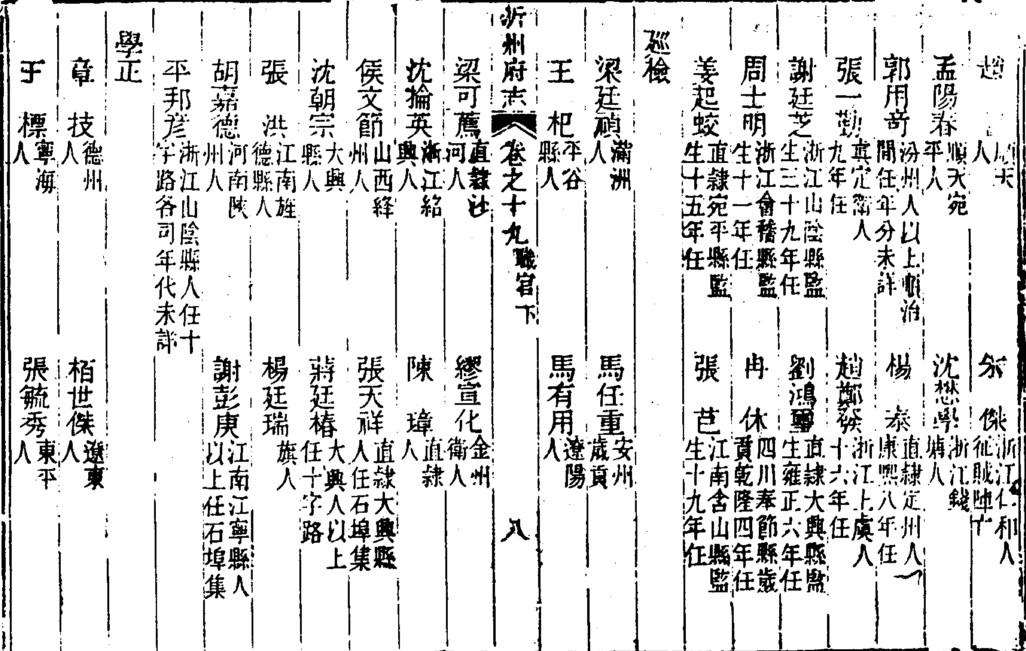 趙 順天人
朱傑 浙江仁和人征賊陣亡
孟陽春 順天宛平人
沈懋學 浙江錢塘人
郭用奇 汾州人以上順治間任年分未詳
楊泰 直隸定州人康熙八年任
張一勤 真定衛人九年任
趙鄭發 浙江上虞人十六年任
謝廷芝 浙江山陰縣監生三十九年任
劉鴻 直隸大興縣監生雍正六年任
周士明 浙江會稽縣監生十一年任
冉休 四川奉節縣歲貢乾隆四年任
姜起蛟 直隸宛平縣監生十五年任
張芑 江南含山縣監生十九年任
巡檢
梁廷禎 滿洲人
馬任重 安州歲貢
王杞 平谷縣人
馬有用 遼陽人
沂州府志 卷之十九 職官下 八
梁可薦 直隸沙河人
繆宣化 金州衛人
沈掄英 浙江紹興人
陳璋 直隸人
侯文節 山西絳州人
張天祥 直隸大興縣人任石埠集
沈朝宗 大興縣人
蔣廷椿 大興人以上任十字路
張洪 江南旌德縣人
楊廷瑞 旗人
胡嘉德 河南陝州人
謝彭庚 江南江寧縣人以上任石埠集
平邦彥 浙江山陰縣人任十字路各司年代未詳
學正
章技 德州人
栢世傑 遼東人
于標 寧海人
張毓秀 東平人